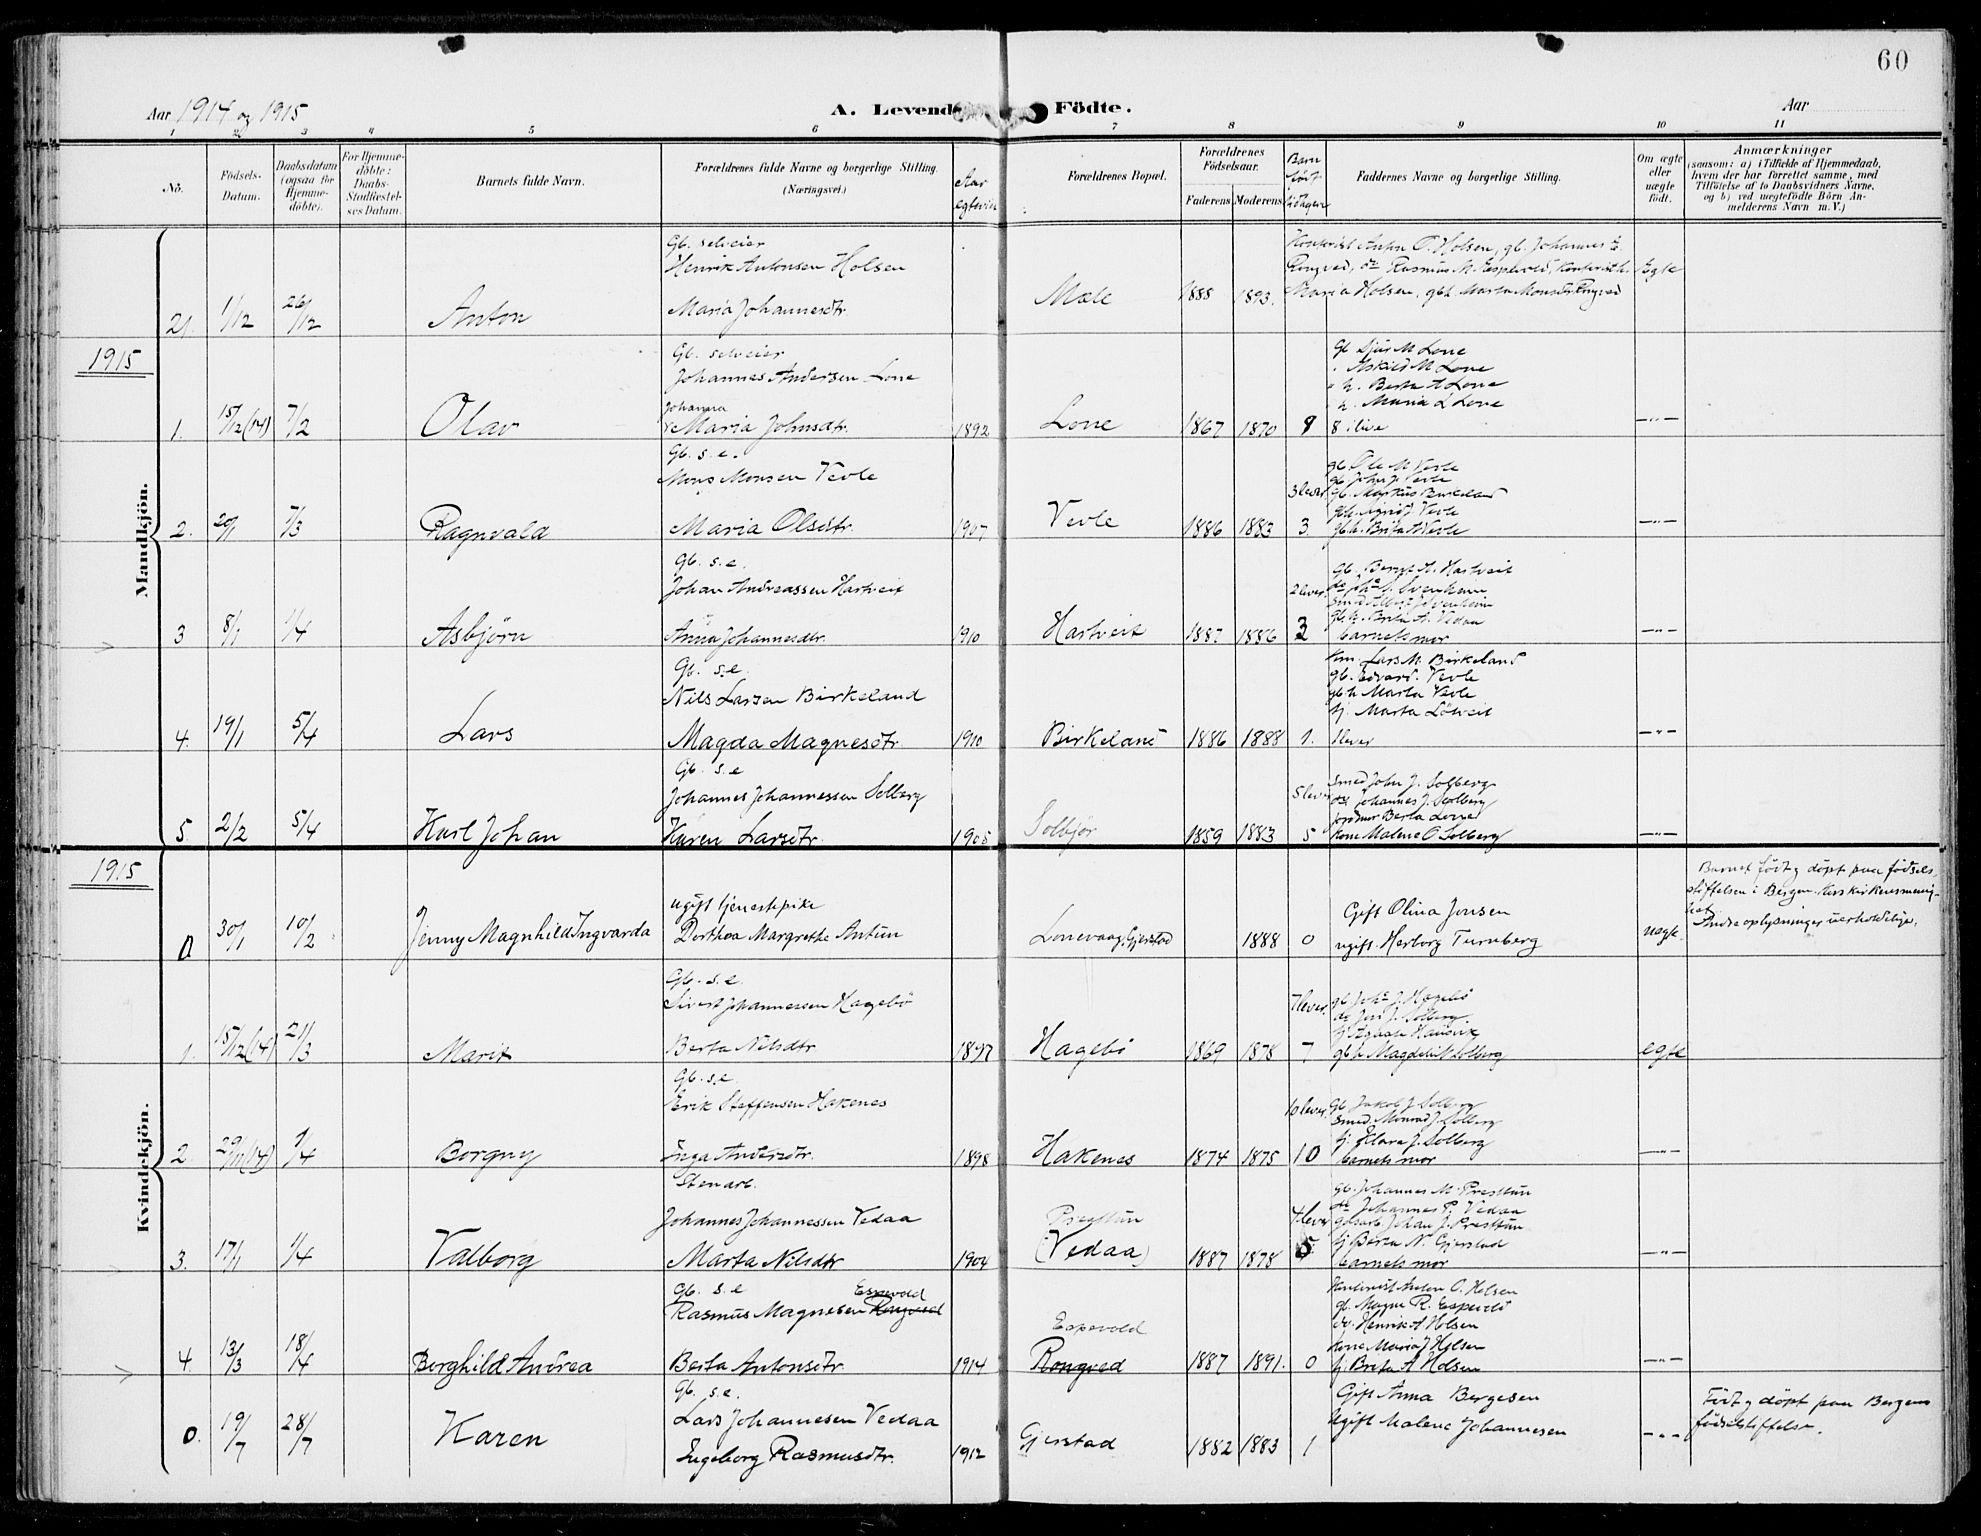 60
Aar 1914 og 1915
A. Levende Födte.
Aar
1 2 3 4 5 6 7 8 9 10 11
No.
Födsels-Datum.
Daabsdatum (ogsaa for Hjemme-döbte).
For Hjemme-döbte: Daabs-Stadfæstel-ses Datum.
Barnets fulde Navn.
Forældrenes fulde Navne og borgerlige Stilling. (Næringsvei.)
Aar egtevie
Forældrenes Bopæl.
Forældrenes Födselsaar.
Faderens Moderens
Barn født
Faddernes Navne og borgerlige Stilling.
Om ægte eller uægte födt.
Anmærkninger
(saasom: a) i Tilfælde af Hjemmedaab, hvem der har forrettet samme, med Tilföielse af to Daabsvidners Navne, og b) ved uegtefödte Börn An-melderens Navn m. V.)
Mandkjön.
21. 1/12 26/12 Anton
Gb. selveier
Henrik Antonsen Holsen
Maria Johannesdtr.
Mæle 1888 1893.
Kontorist Anton O. Holsen, gb. Johannes E.
Rongved, do Rasmus M. Espevold, Kontorist h.
Maria Holsen, gbh. Marta Monsdtr Rongved
Egte
1915
1. 15/12 (14) 7/2 Olav
Gb. selveier
Johannes Andersen Lone
Johanna
Maria Johnsdtr. 1892
Lone 1867 1870 9
Gb Sjur M Lone
M Lone
h. Berta A Lone
h. Maria L Lone
8 i live
—"—
2. 20/1 7/3 Ragnvald
Gb. s.e.
Mons Monsen Vevle
Maria Olsdtr. 1907
Vevle 1886 1883 3.
3 lever
gb. Ole M Vevle
gb. John J. Vevle
gb. Markus Birkeland
gbh. Agnes J Vevle
gbh. Brita A Vevle
—"—
3 8/1 1/4 Asbjørn
Gb. s.e.
Johan Andreassen Hartveit
Anna Johannesdtr. 1910
Hartveit 1887 1886 3
2 lever
Gb. Bernt A. Hartveit
gbh. Brita A. Vedaa
barnets mor
—"—
4. 19/1 5/4 Lars
Gb. s.e
Nils Larsen Birkeland
Magda Magnesdtr 1910
Birkeland 1886 1888 1.
Lars M. Birkeland
gb. Edvard. Vevle
gbh Marta Vevle
pj. Marta Løtveit
1 lever
—"—
5. 2/2 5/4 Karl Johan
Gb. s.e
Johannes Johannessen Solberg
Karen Larsdtr. 1905
Solbjør 1859 1883 5
5 lever
Smed John J. Solberg
do Johannes J. Solberg
jordmor Berta Lone
kone Malene O Solberg
—"—
1915
Kvindekjön.
0 30/1 10/2 Jenny Magnhild Ingvarda
ugift tjenestepike
Dorthea Margrethe Antun
Lonevaag, Gjerstad 1888 0
Gift Olina Jonsen
ugift. Herborg Turnberg
uegte
Barnet født og døpt paa fødsels
stiftelsen i Bergen. Korskirkens menig-
het
Andre oplysninger uerholdelige.
1. 15/12 (14) 21/3 Marit
Gb. s.e.
Sivert Johannessen Hagebø
Berta Nilsdtr. 1897
Hagebø 1869 1878 7
7 lever.
gb. Johs J. Hagebø
do Jon J. Solberg
pj Agnate Hausvik
gbh Magdeli Solberg
egte
2. 29/11 (14) 1/4 Borgny
Gb. s.e
Erik Steffensen Hakenes
Inga Andersdtr. 1898
Hakenes 1874 1875 10
10 lever.
gb Jakob J Solberg
Smed Monrad J Solberg
pj. Klara J. Solberg
barnets mor
—"—
3. 17/1 1/4 Valborg
Stenarb.
Johannes Johannessen Vedaa
Marta Nilsdtr 1904
Presttun
(Vedaa) 1887 1878 5
4 lever
gb. Johannes M. Presttun
do Johannes P. Vedaa
gdsarb. Johan J. Presttun
pj Berta N. Gjerstad
barnets mor
—"—
4. 13/3 18/4 Borghild Andrea
Gb. s.e Espevold
Rasmus Magnesen Rongved
Berta Antonsdtr. 1914
Espevold
Rongved 1887 1891. 0
Kontorist Anton O. Holsen
gb. Magne R. Espevold
do. Henrik A Holsen
kone Maria J Holsen
pj. Brita A Holsen
—"—
0. 19/7 28/7 Karen
Gb. s.e.
Lars Johannesen Vedaa
Ingeborg Rasmusdtr. 1912
Gjerstad 1882 1883 1
Gift Anna Bergesen
Ugift Malene Johannesen
—"—
Født og døpt paa Bergens
fødselstiftelse.